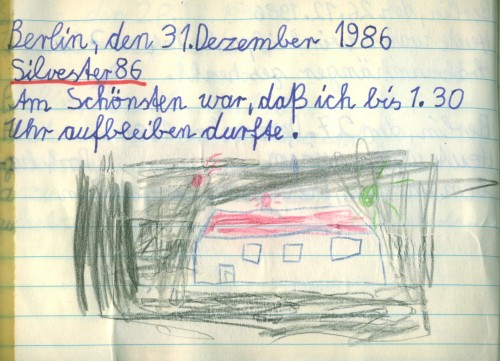 Berlin, den 31. Dezember 1986
Silvester 86
Am Schönsten war, daß ich bis 1.30
Uhr aufbleiben durfte.